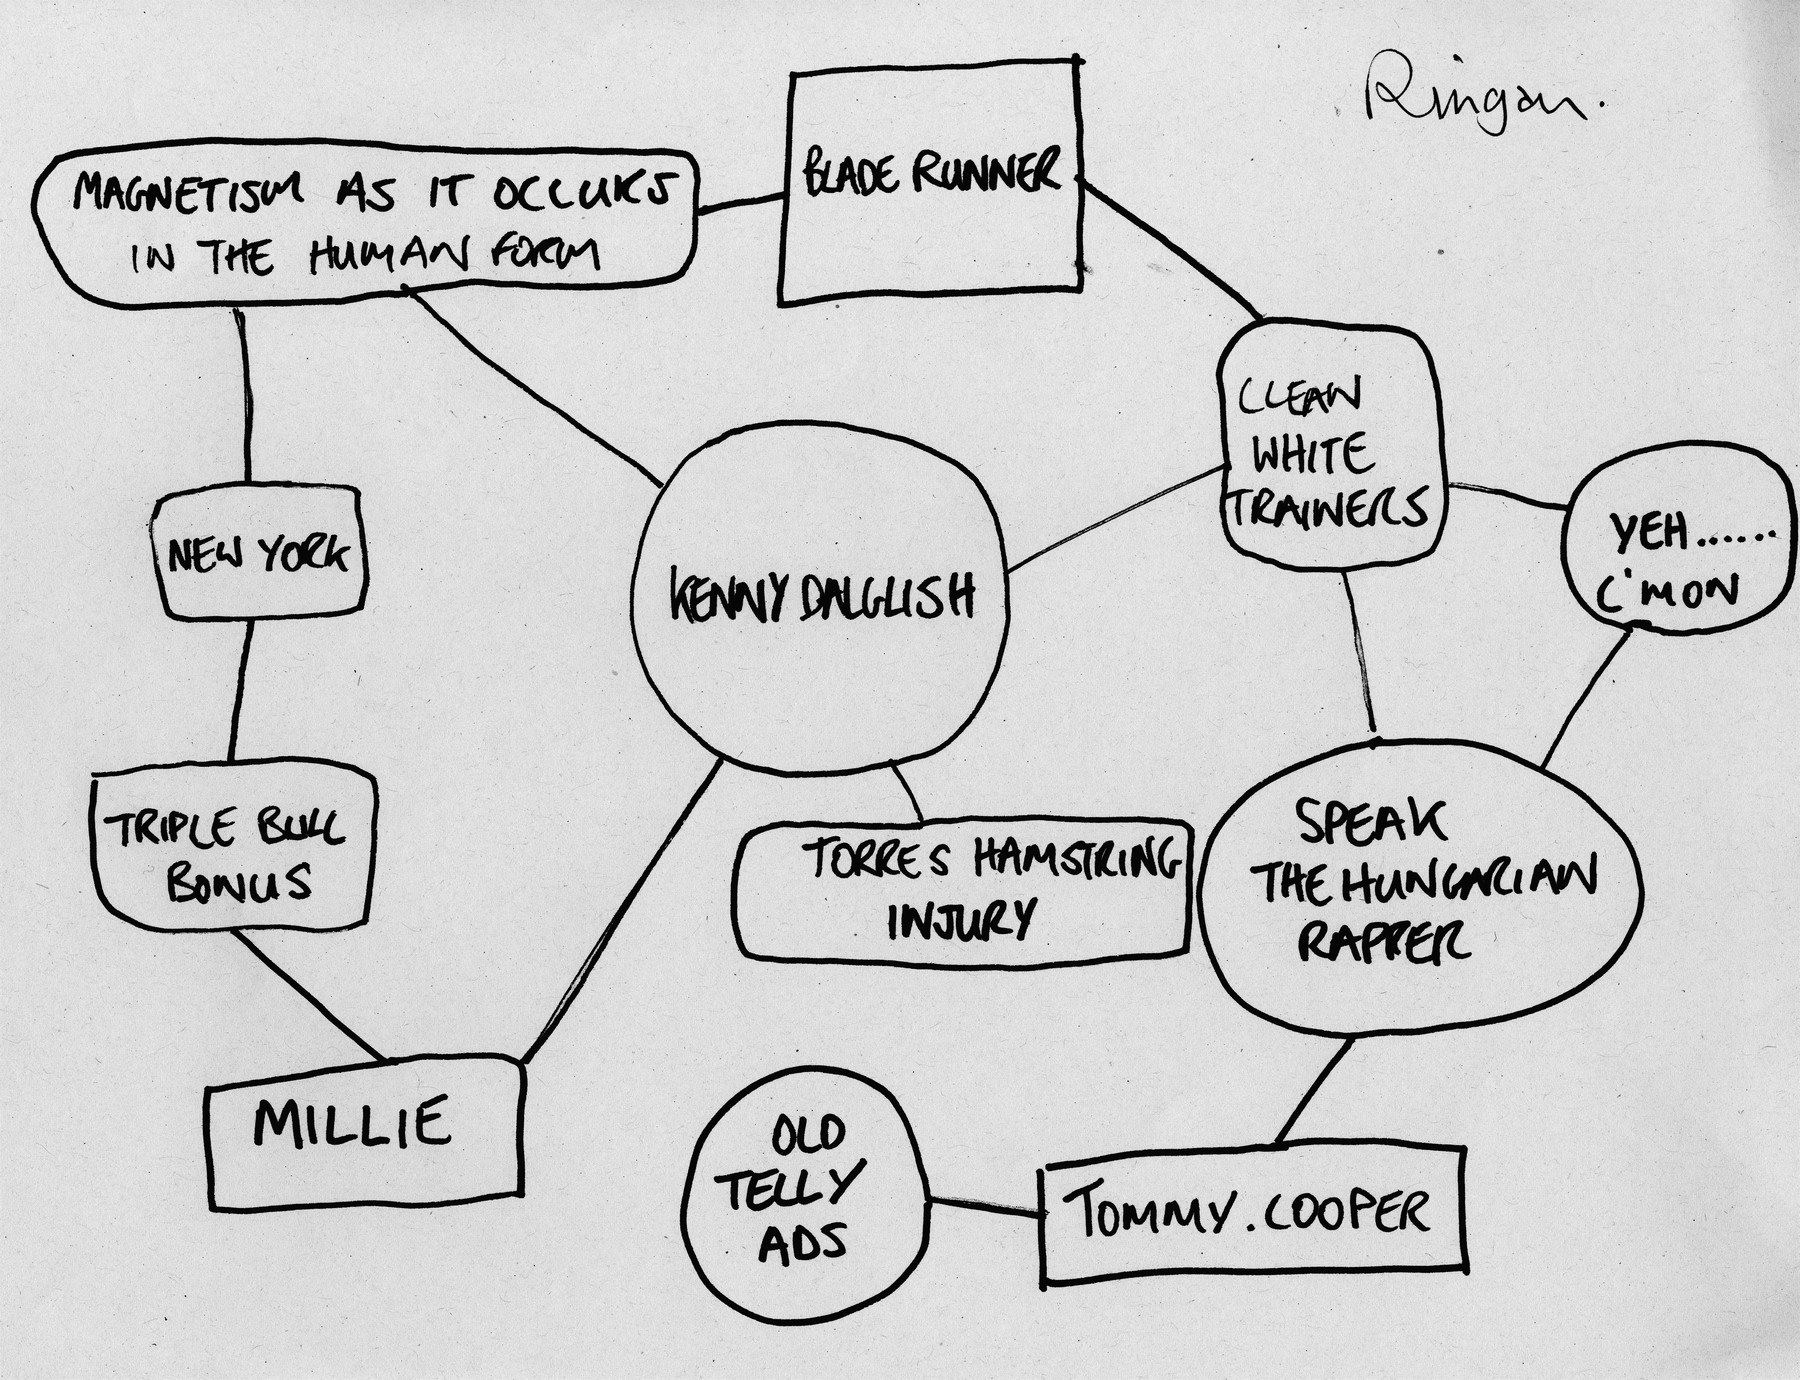 Ringan.
BLADE RUNNER
MAGNETISM AS IT OCCURS
IN THE HUMAN FORM
CLEAN
WHITE
TRAINERS
YEH......
C'MON
NEW YORK
KENNY DALGLISH
TRIPLE BULL
BONUS
TORRES HAMSTRING
INJURY
SPEAK
THE HUNGARIAN
RAPPER
MILLIE
OLD
TELLY
ADS
TOMMY.COOPER